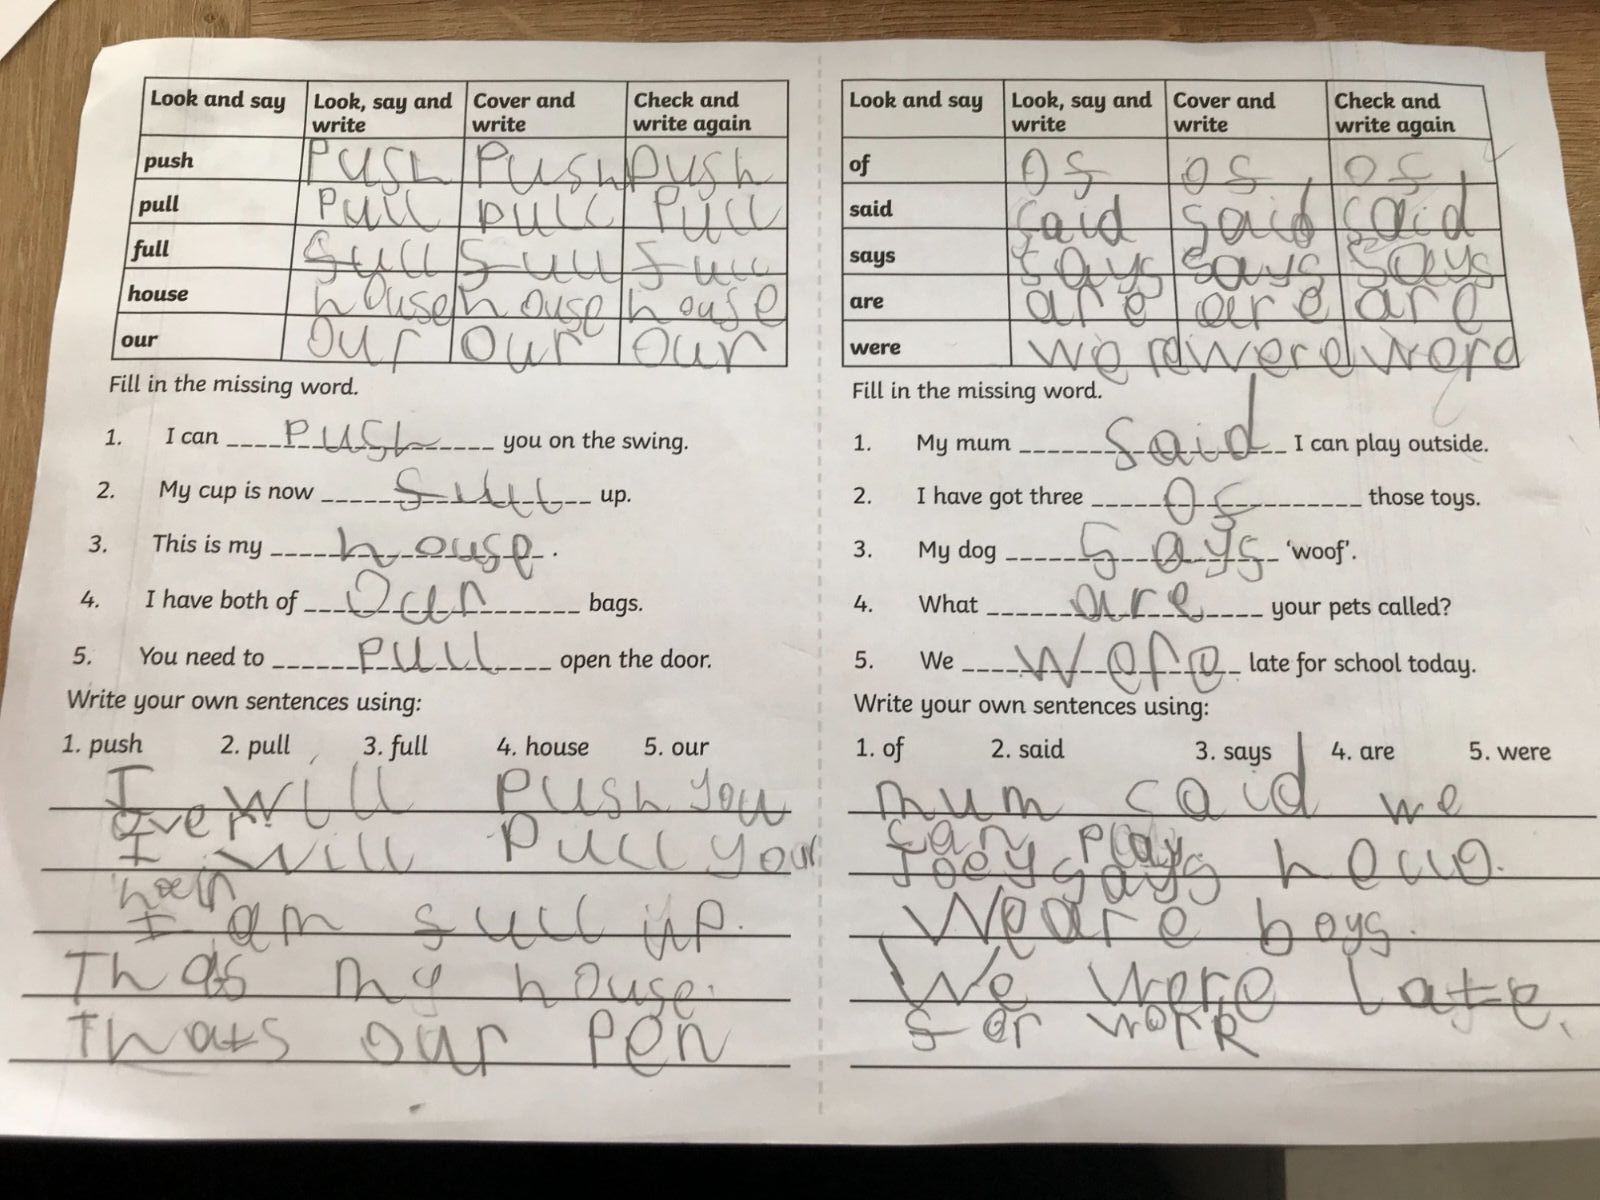 Look and say Look, say and write Cover and write Check and write again
push push push push
pull pull pull pull
full full full full
house house house house
our our our our
Fill in the missing word.
1. I can push you on the swing.
2. My cup is now full up.
3. This is my house.
4. I have both of our bags.
5. You need to pull open the door.
Write your own sentences using:
1. push 2. pull 3. full 4. house 5. our
I will push you
over.
I will pull your
I am full up.
Thats my house.
Thats our pen
Look and say Look, say and write Cover and write Check and write again
of of of of
said said said said
says says says says
are are are are
were were were were
Fill in the missing word.
1. My mum said I can play outside.
2. I have got three of those toys.
3. My dog says 'woof'.
4. What are your pets called?
5. We were late for school today.
Write your own sentences using:
1. of 2. said 3. says 4. are 5. were
mum said we
can play.
Joey says hello.
We are boys.
We were late.
for work